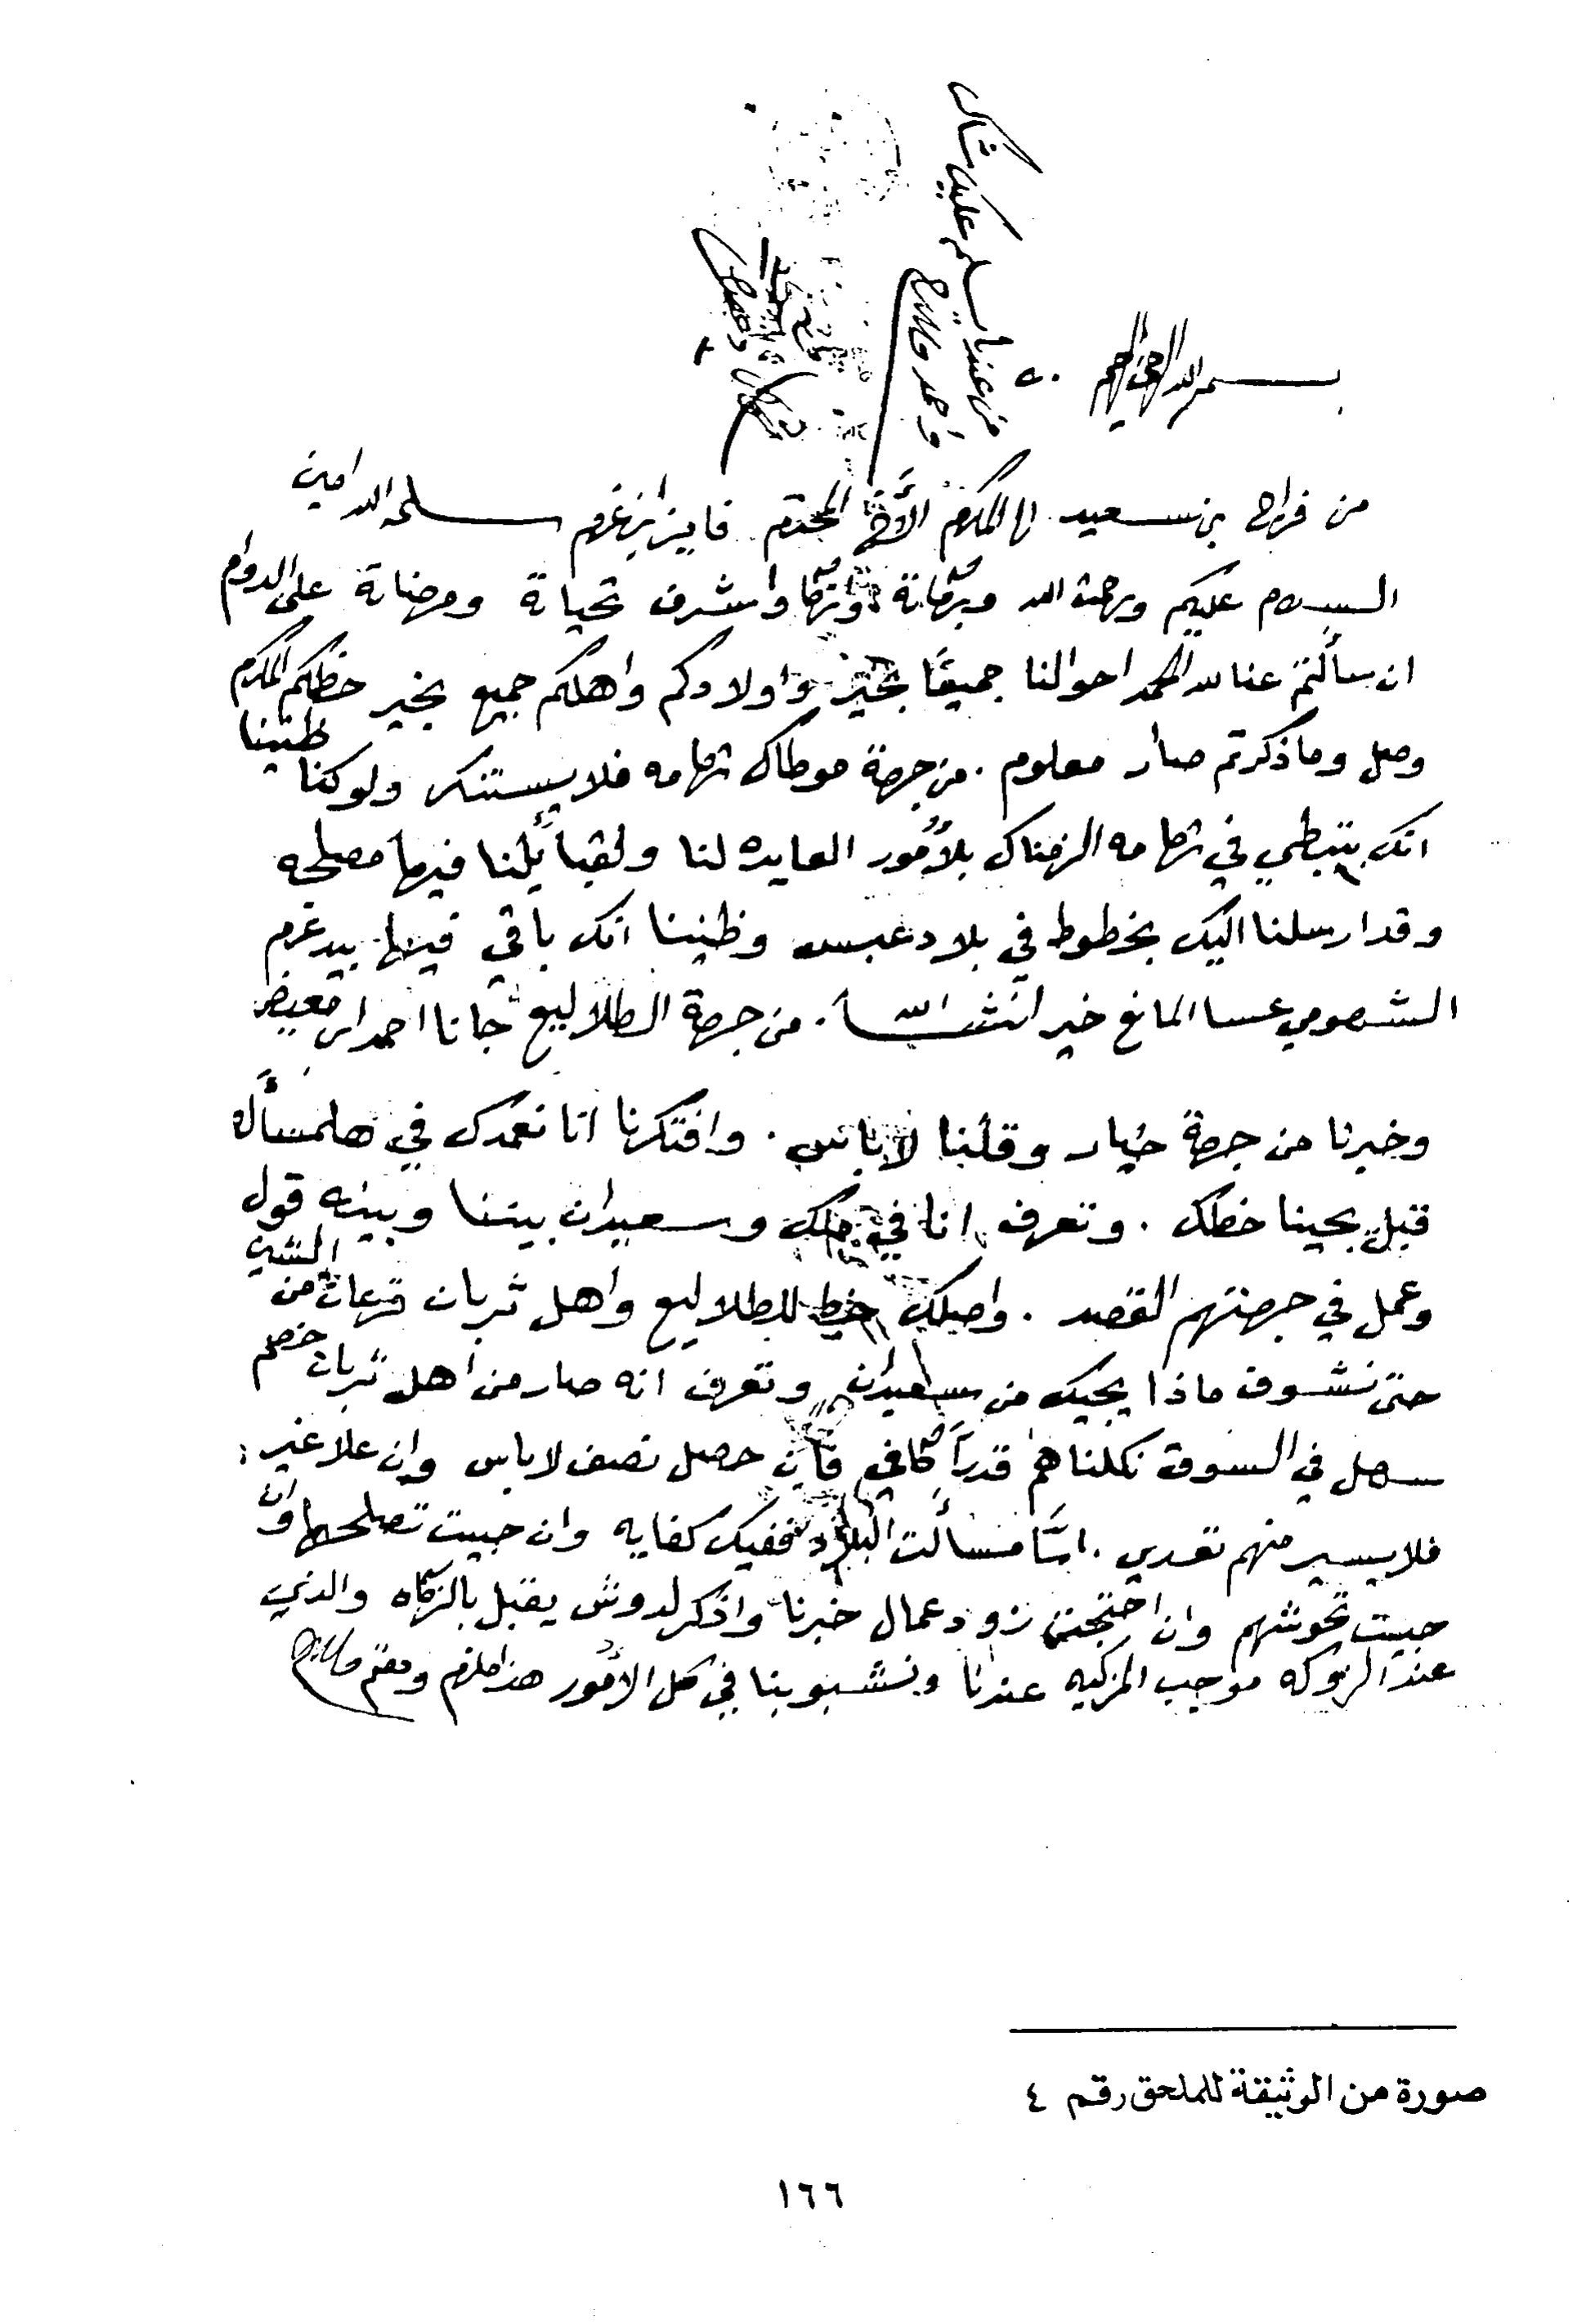 بسم الله الرحمن الرحيم
من عندنا يسلم عليك شاكر
من فراج بن سعيد الى المكرم الأخ المحترم فايز ابن غرم سلمه الله امين
السلام عليكم ورحمت الله وبركاتة وأزكا واشرف تحياتة ومرضاتة على الدوام
ان سألتم عنا لله الحمد احوالنا جميعًا بخير واولادكم واهلكم جميع بخير خطكم المكرم
وصل وما ذكرتم صار معلوم . من جهة موطاك تهامه فلا يستنكر ولو كنا ظنينا
انك بتبطي في تهامه الزمناك بلأمور العايده لنا ولقبايلنا فيها مصلحه
وقد ارسلنا اليك بخطوط في بلاد عبس وظنينا انك باقي فيها بيد غرم
الشهومي عسا المانع خير انشالله . من جهة الطلاليع جانا احمد ابن معيض
وخبرنا من جهة خيار وقلنا لاباس . وافتكرنا انا نعمدك في هلمسأله
قبل يجينا خطك . وتعرف انا في ملك وسعيدان بيننا وبينه قول
وعمل في جهتهم القصد . واصلك خط للطلاليع واهل ثربان قرعات من الشي
حتى نشوف ماذا يجيك من سعيدان وتعرف انه صار من اهل ثربان خصم
سهل في السوق نكلناهم قدراً كافي فأن حصل نصف لاباس وان علا غير :
فلا يسير منهم تعدي . امّا مسألت البلاد ففيك كفايه وان حبيت تصلحها وان
حبيت تحوشهم وان احتجت زود عمال خبرنا واذكر لدوش يقبل بالزكاه والذي
عند الزوكه موجب المزكيه عندنا ونشبو بنا في كل الأمور هذا ملزم ودمتم
صورة من الوثيقة للملحق رقم ٤
١٦٦